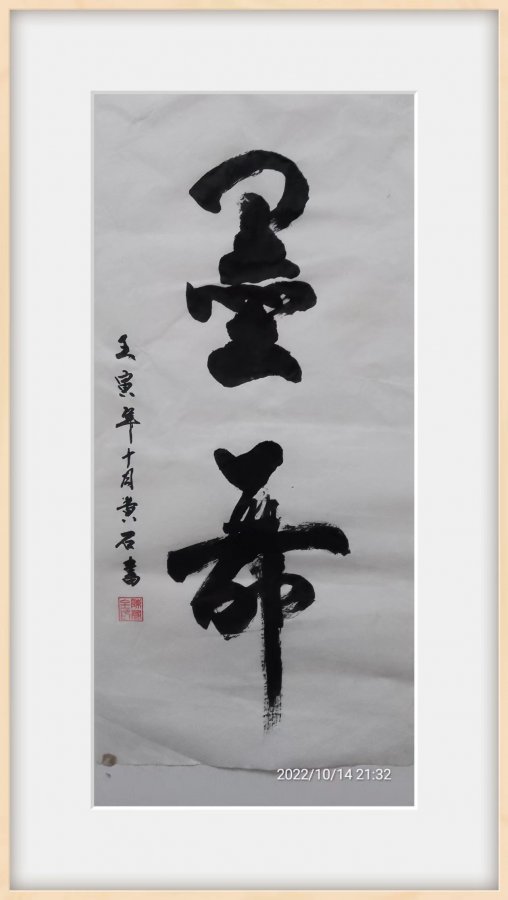 墨希
壬寅年十月黄石書
2022/10/14 21:32